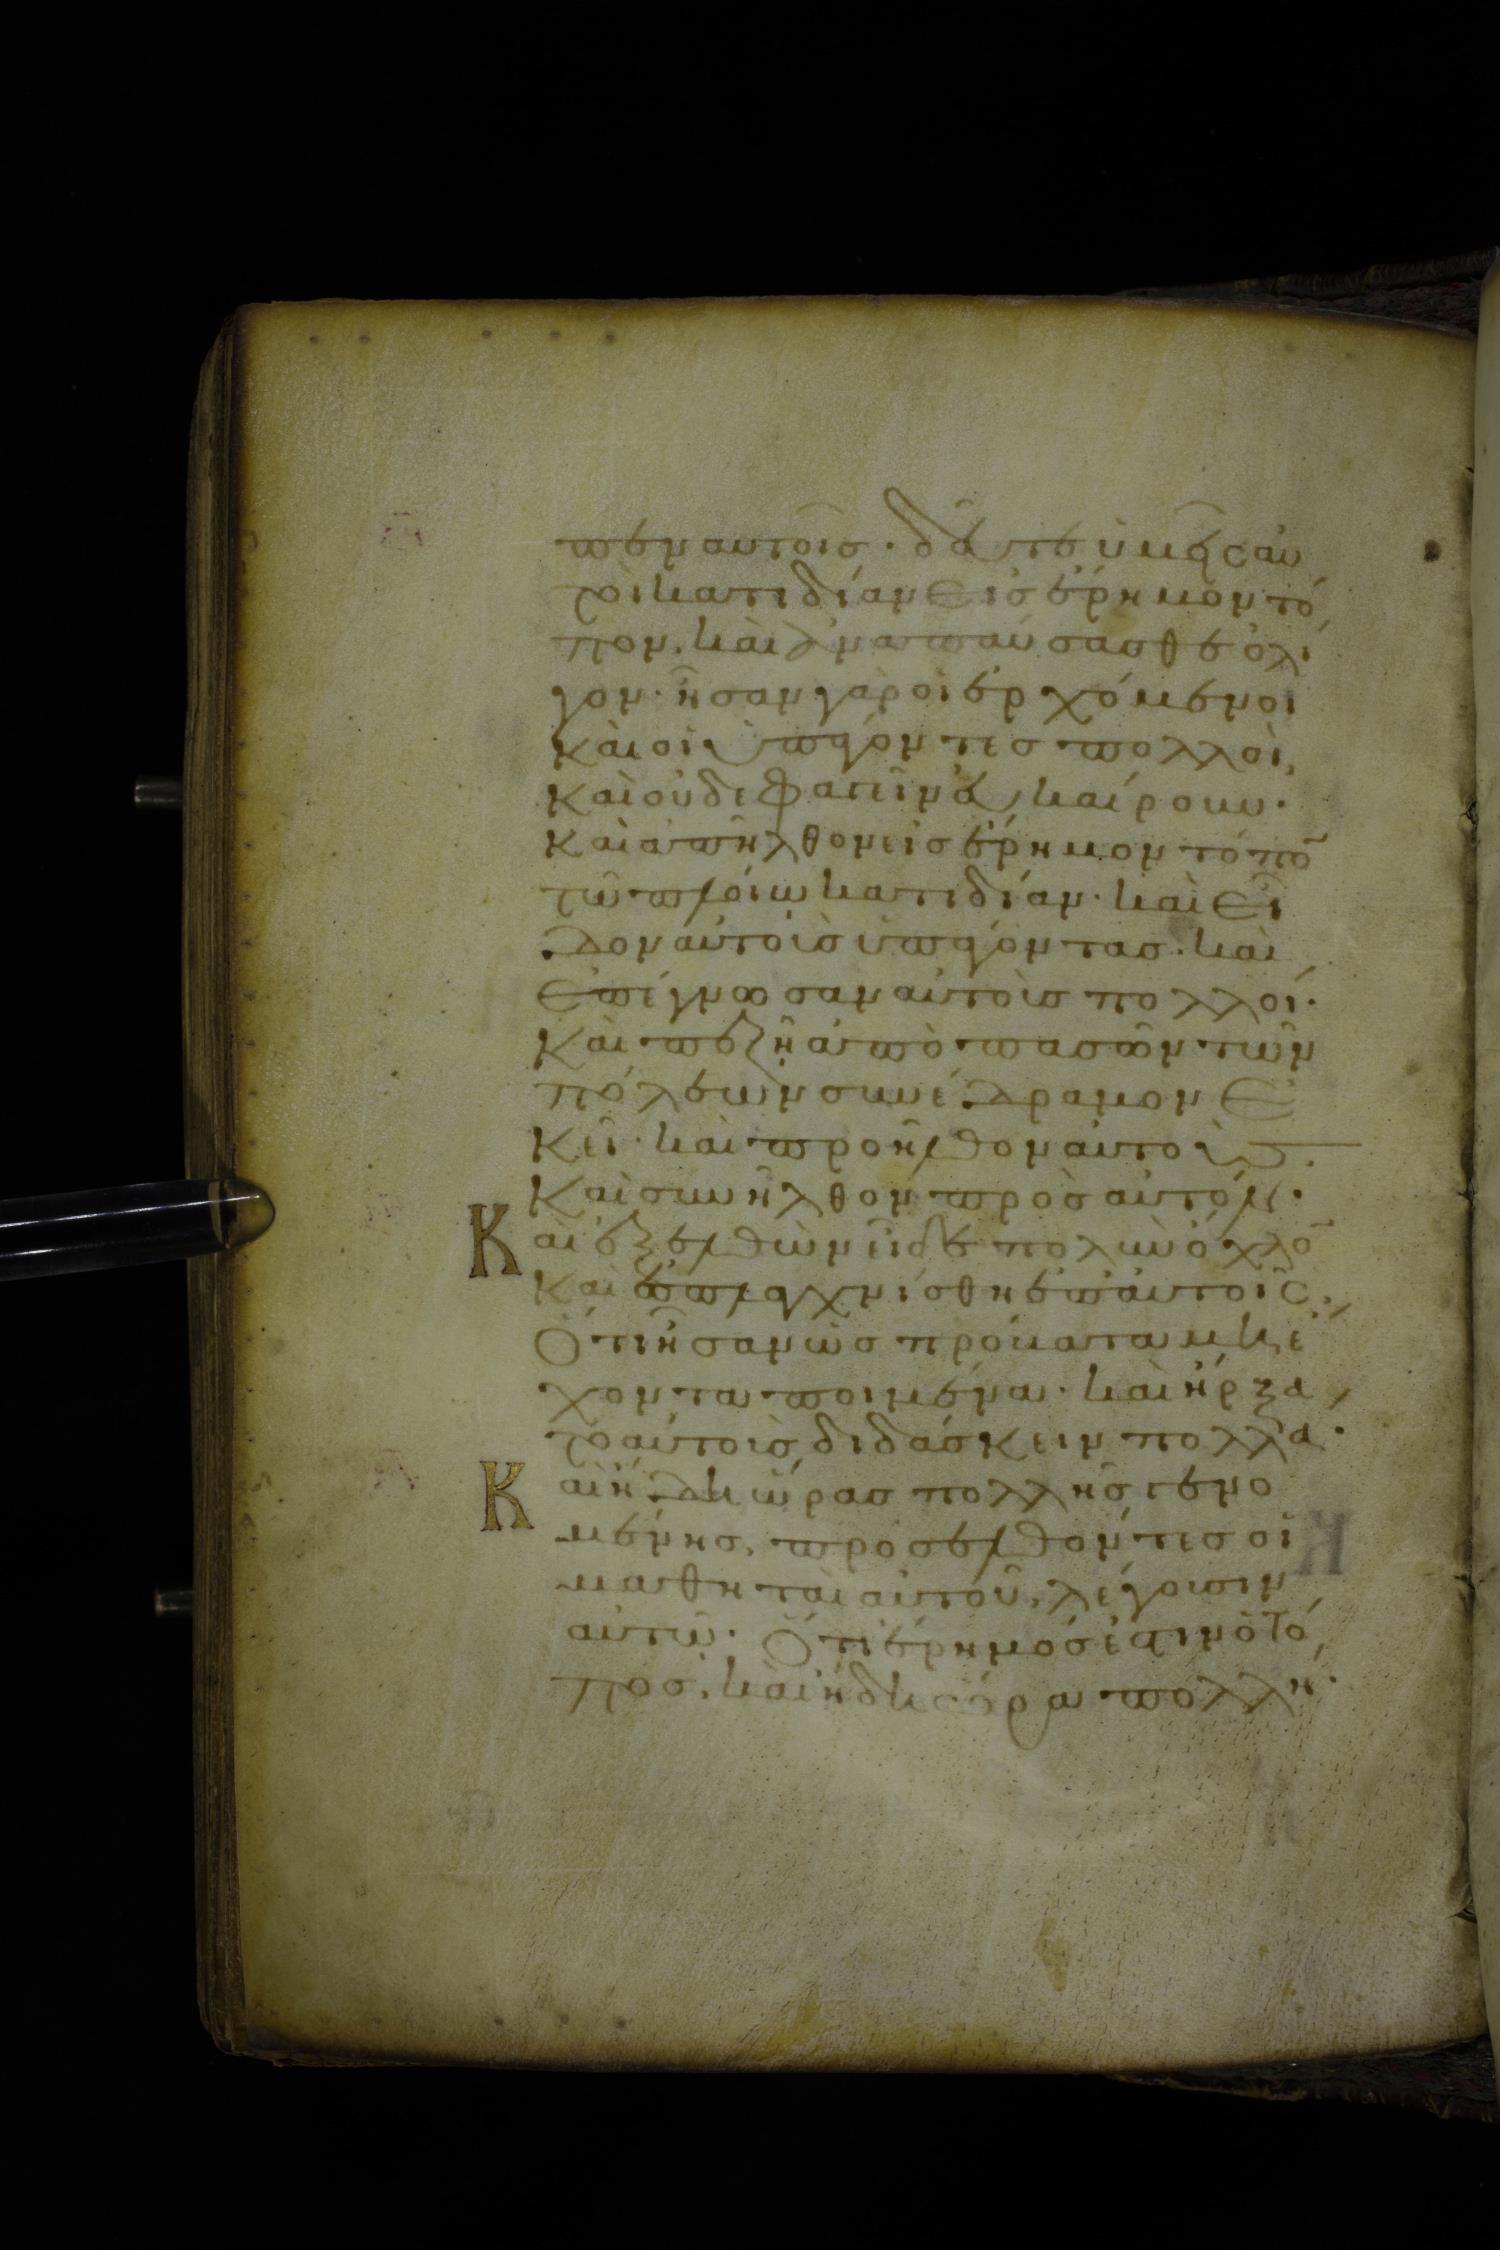 πεν αυτοῖσ· δεῦτε ὑμεῖς αὐ
τοὶ κατιδίαν εἰσ ἔρημον τό
πον, καὶ ἀναπαύσασθε ὀλί
γον· ἦσαν γὰρ οἱ ἐρχόμενοι
καὶ οἱ ὑπάγοντεσ πολλοὶ,
καὶ οὐδὲ φαγεῖν εὐκαίρουν·
καὶ ἀπῆλθον εἰσ ἔρημον τόπο̅
τῶ πλοίω κατιδίαν· καὶ εἶ
δον αὐτοὺσ ὑπάγοντασ· καὶ
ἐπέγνωσαν αὐτοὺσ πολλοί·
καὶ πεζῆ ἀπὸ πασῶν τῶν
πόλεων συνέδραμον ἐ
κεῖ· καὶ προῆλθον αὐτοὺσ·
καὶ συνῆλθον πρὸσ αὐτόν·
Καὶ ἐξελθὼν εἶδε πολὺν ὄχλο̅
καὶ ἐσπλαγχνίσθη ἐπ' αὐτοῖς,
ὅτι ἦσαν ὡσ πρόβατα μὴ ἔ
χοντα ποιμένα· καὶ ἤρξα
το αὐτοὺσ διδάσκειν πολλά·
Καὶ ἤδη ὥρασ πολλῆσ γενο
μένησ, προσελθόντεσ οἱ
μαθηταὶ αὐτοῦ, λέγουσιν
αὐτῶ· ὅτι ἔρημόσ ἐστιν ὁ τό
ποσ, καὶ ἤδη ὥρα πολλή·